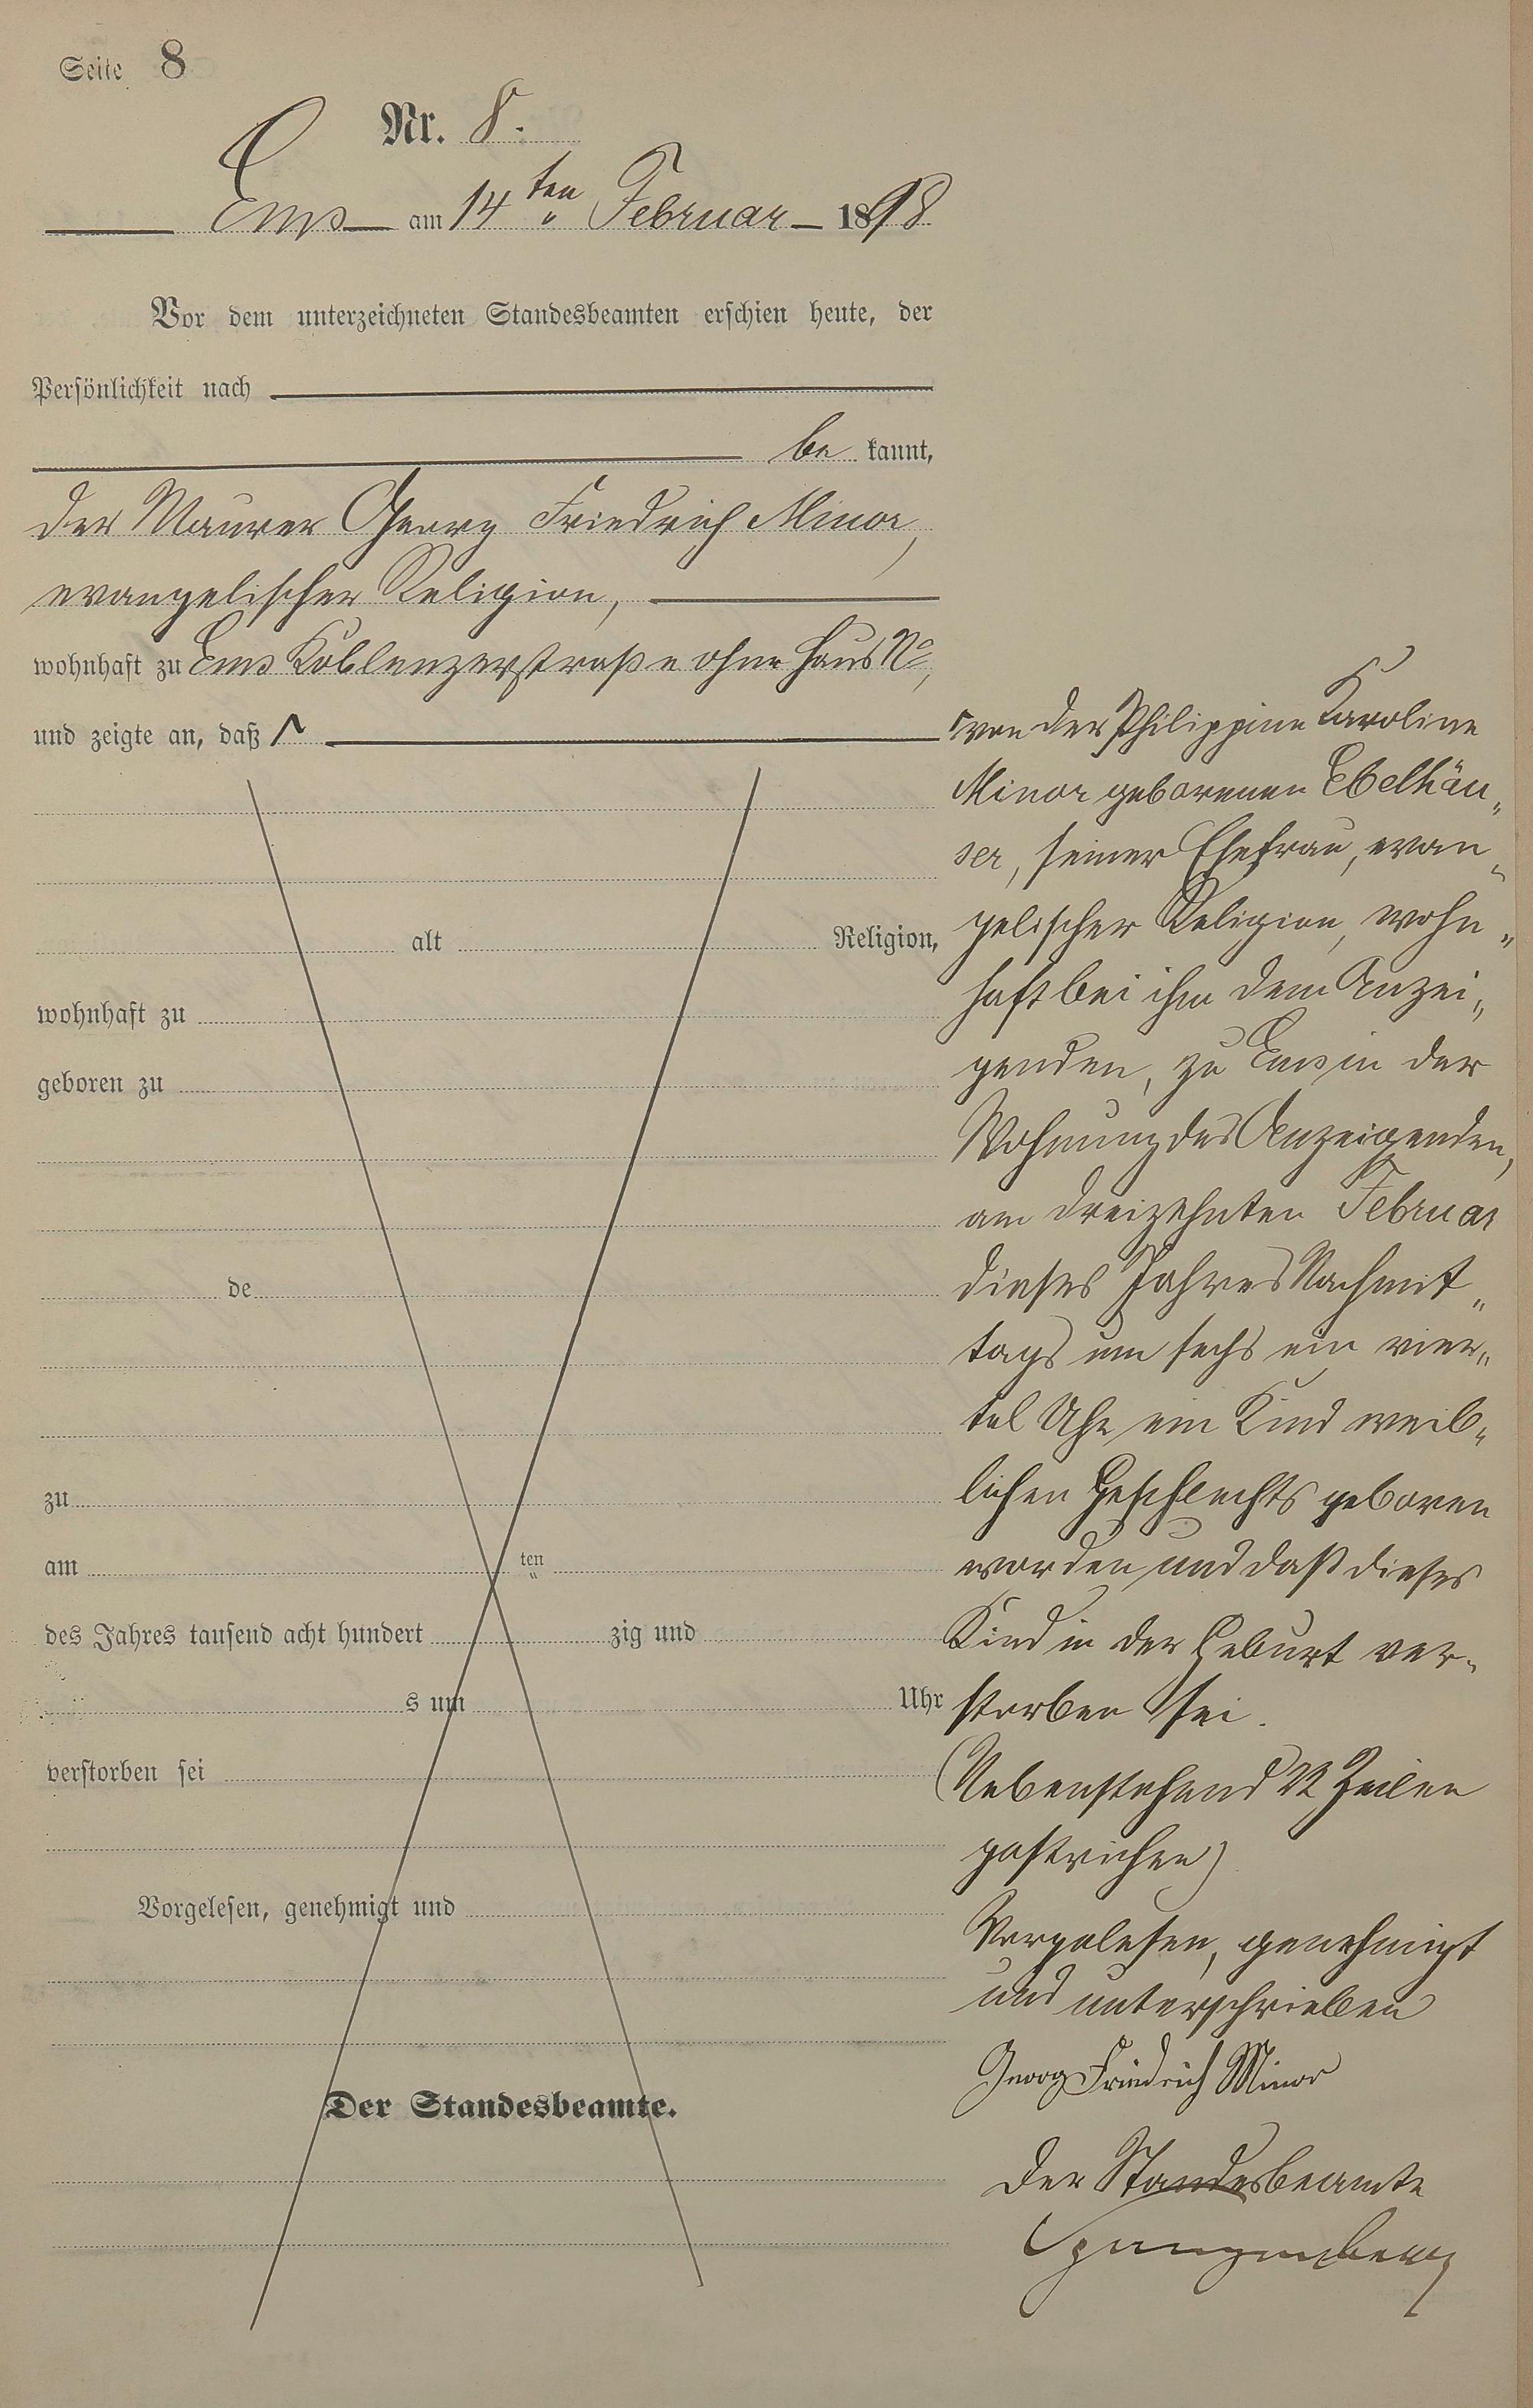 Seite 8
Nr. 8.
Ems am 14ten Februar 1898
Vor dem unterzeichneten Standesbeamten erschien heute, der
Persönlichkeit nach
be kannt,
der Maurer Georg Friedrich Minor,
evangelischer Religion,
wohnhaft zu Ems Koblenzerstraße ohne Haus No,
und zeigte an, daß
von der Philippine Karoline
Minor geborenen Ebelhäu„
ser, seiner Ehefrau, evan„
gelischer Religion, wohn„
haft bei ihm dem Anzei„
genden, zu Ems in der
Wohnung des Anzeigenden,
am dreizehnten Februar
dieses Jahres Nachmit„
tags um sechs ein vier„
tel Uhr ein Kind weib„
lichen Geschlechts geboren
worden und daß dieses
Kind in der Geburt ver„
storben sei.
(Nebenstehend 22 Zeilen
gestrichen)
Vorgelesen, genehmigt
und unterschrieben
Georg Friedrich Minor
Der Standesbeamte
Spangenberg
alt Religion,
wohnhaft zu
geboren zu
de
zu
am ten
des Jahres tausend acht hundert zig und
s um Uhr
verstorben sei
Vorgelesen, genehmigt und
Der Standesbeamte.